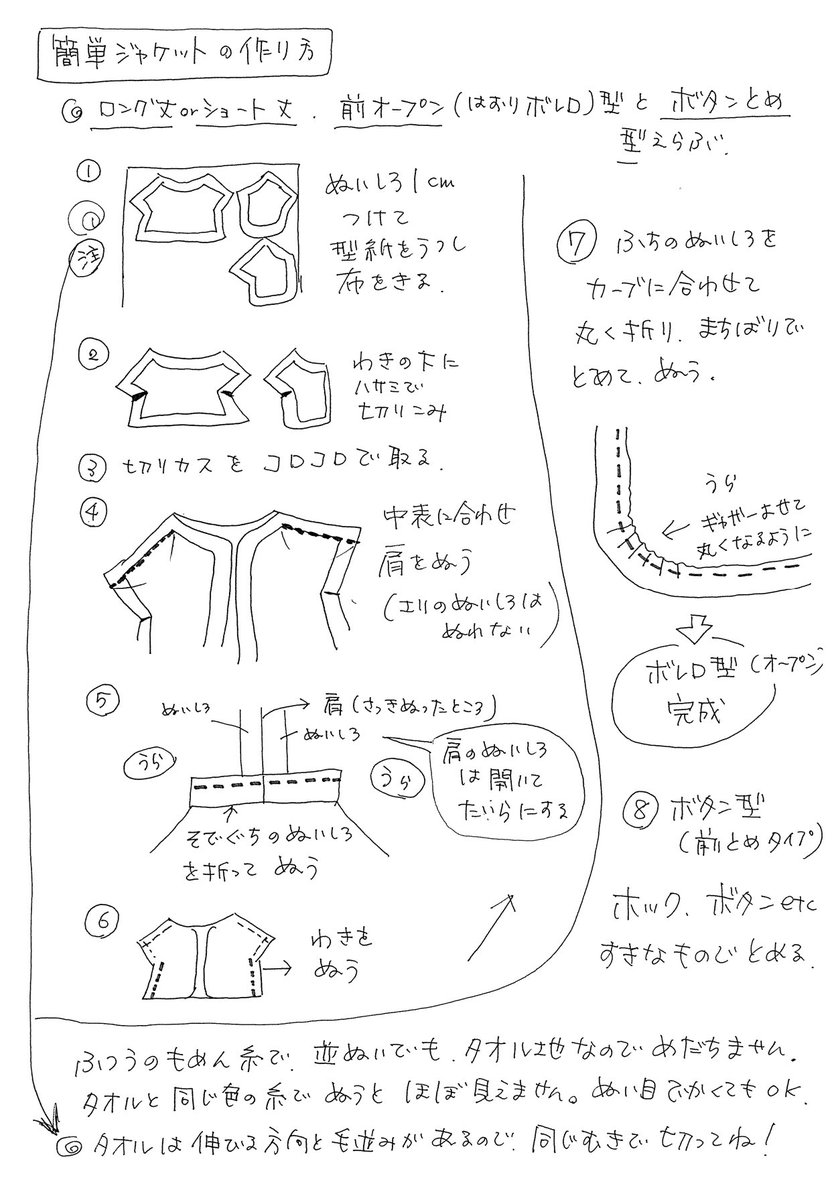 簡単ジャケットの作り方
◎ ロング丈orショート丈、前オープン(はおりボレロ)型と ボタンとめ
型えらぶ.
①
①
注
ぬいしろ1cm
つけて
型紙をうつし
布をきる.
②
わきの下に
ハサミで
切りこみ
③ 切りカスを コロコロで取る.
④
中表に合わせ
肩をぬう
(エリのぬいしろは
ぬわない)
⑤
ぬいしろ
肩(さっきぬったところ)
ぬいしろ
うら
うら
肩のぬいしろ
は開いて
たいらにする
そでぐちのぬいしろ
を折って ぬう
⑥
わきを
ぬう
⑦ ふちのぬいしろを
カーブに合わせて
丸く折り、まちばりで
とめて、ぬう。
うら
ギャザーよせて
丸くなるように
ボレロ型(オープン)
完成
⑧ ボタン型
(前とめタイプ)
ホック、ボタンetc
すきなものでとめる.
ふつうのもめん糸で、並ぬいでも、タオル地なのでめだちません.
タオルと同じ色の糸でぬうと ほぼ見えません。ぬい目でかくてもOK.
◎ タオルは伸びる方向と毛並みがあるので、同じむきで切ってね!